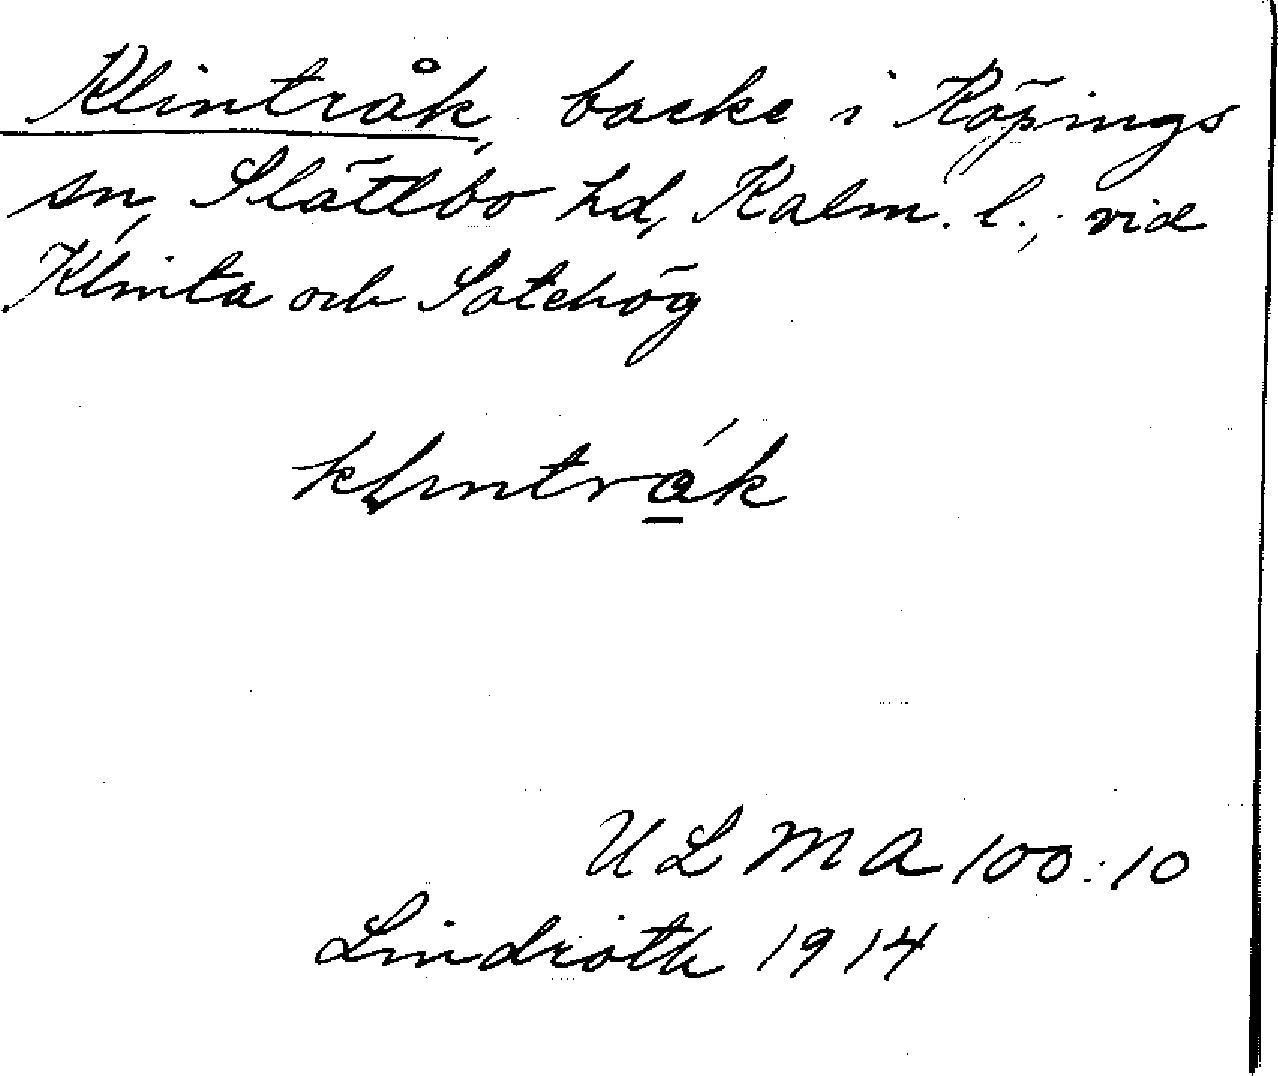 Klintråk, backe i Köpings
sn, Slättbo hd, Kalm. l., vid
Klinta och Sotehög
klintråk
ULMA 100:10
Lindroth 1914